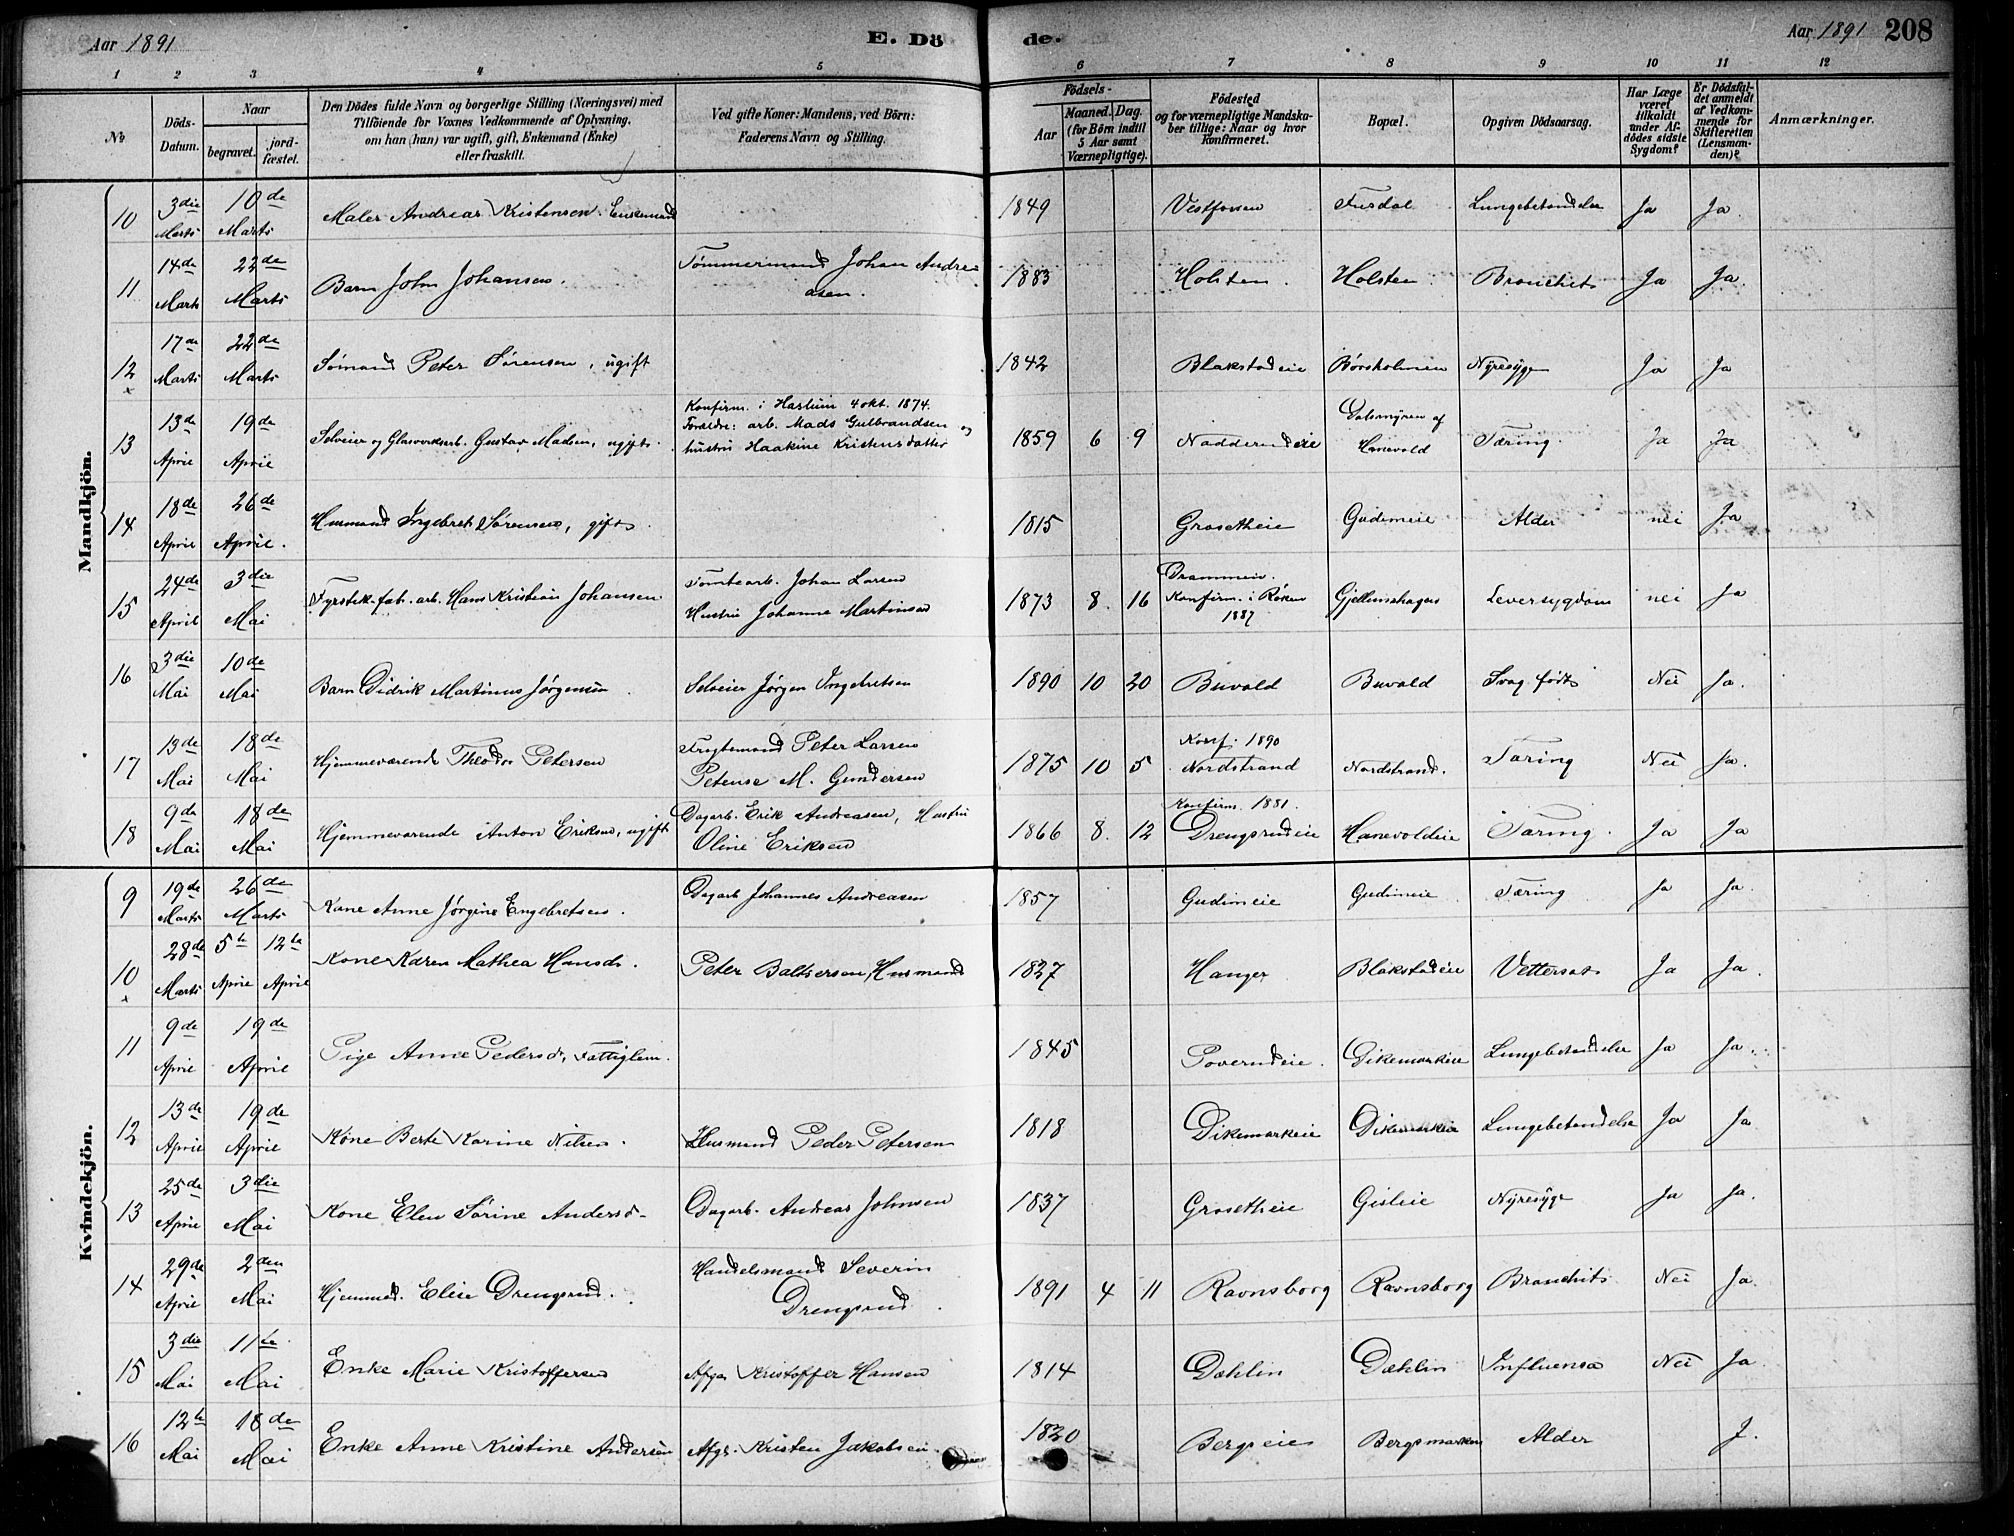 Aar 1891 E. Dö de. Aar 1891 208
1 2 3 4 5 6 7 8 9 10 11 12
No
Döds-Datum.
Naar
begravet.
jord-fæstet.
Den Dödes fulde Navn og borgerlige Stilling (Næringsvei) med
Tilföiende for Voxnes Vedkommende af Oplysning,
om han (hun) var ugift, gift, Enkemand (Enke)
eller fraskilt.
Ved gifte Koner: Mandens, ved Börn:
Faderens Navn og Stilling.
Födsels-
Aar
Maaned. Dag.
(for Börn indtil
5 Aar samt
Værnepligtige).
Födested
og for værnepligtige Mandska-
ber tillige: Naar og hvor
Konfirmeret.
Bopæl.
Opgiven Dödsaarsag.
Har Læge
været
tilkaldt
under Af-
dödes sidste
Sygdom?
Er Dödsfal-
det anmeldt
af Vedkom-
mende for
Skifteretten
(Lensman-
den)?
Anmærkninger.
Mandkjön.
10 3die Marts 10de Marts Maler Andreas Kristensen. Enkemand 1849 Vestfossen Fusdal Lungebetændelse Ja Ja.
11 14de Marts 22de Marts Barn John Johansen. Tømmermand Johan Andreasen. 1883 Holsten. Holsten. Bronchit Ja Ja.
12 x 17de Marts 22de Marts Sømand Peter Sørensen, ugift 1842 Blakstadeie Børsholmen Nyresyge Ja Ja
13 13de April 19de April Selveier og Glasværksarb. Gustav Madsen, ugift. Konfirm. i Haslum 4 okt. 1874.
Forældre: arb. Mads Gulbrandsen og
hustru Haakine Kristensdatter 1859 6 9 Nadderudeie Dalsmyren af Hanevold Tæring. Ja Ja
14 18de April 26de April. Husmand Ingebret Sørensen, gift. 1815 Grosetheie Gudimeie Alder nei Ja
15 24de April 3die Mai Fyrstik.fab. arb. Hans Kristian Johansen Tomtearb. Johan Larsen
Hustru Johanne Martinsen 1873 8. 16 Drammen.
Konfirm. i Røken
1887 Gjellumshagen Leversygdom nei Ja
16 3die Mai 10de Mai Barn Didrik Martinus Jørgensen Selveier Jørgen Ingebretsen 1890 10 20 Buvold Buvold Svag født Nei Ja.
17 13de Mai 18de Mai Hjemmeværende Theodor Petersen Fragtemand Peter Larsen
Petense M. Gundersen 1875 10 5 Konf. 1890
Nordstrand Nordstrand. Tæring Nei Ja.
18 9de Mai 18de Mai Hjemmeværende Anton Eriksen, ugift Dagarb. Erik Andreasen, Hustru
Oline Eriksen 1866 8. 12 Konfirm. 1881.
Drengsrudeie Hanevoldeie Tæring. Ja Ja
Kvindekjön.
9 19de Marts 26de Marts Kone Anne Jørgine Engebretsen. Dagarb Johannes Andreasen 1857 Gudimeie Gudimeie Tæring Ja Ja.
10 x 28de Marts 5te April 12te April Kone Karen Mathea Hansdr. Peter Baltsersen Husmand 1827 Hanger Blakstadeie Vattersot Ja Ja.
11 9de April 19de April Pige Anne Pedersd, Fattiglem. 1845 Poverudeie. Dikemarkeie Lungebetændelse Ja Ja.
12 13de April 19de April Kone Berte Karine Nilsen. Husmand Peder Petersen 1818 Dikemarkeie Dikemarkeie Lungebetændelse Ja Ja
13 25de April 3die Mai Kone Elen Sørine Andersd- Dagarb. Andreas Johnsen 1837 Grosetheie Gisleie Nyresyge Ja Ja.
14 29de April 2den Mai Hjemmed. Elise Drengsrud. Handelsmand Severin
Drengsrud. 1891 4 11 Ravnsborg Ravnsborg Bronchit Nei Ja.
15 3die Mai 11te Mai Enke Marie Kristoffersen Afga. Kristoffer Hansen 1814 Dæhlin Dæhlin Influensa Nei Ja.
16 12te Mai 18de Mai Enke Anne Kristine Andersen Afgd. Kristen Jakobsen 1820 Bergseie Bergsmarken Alder J.